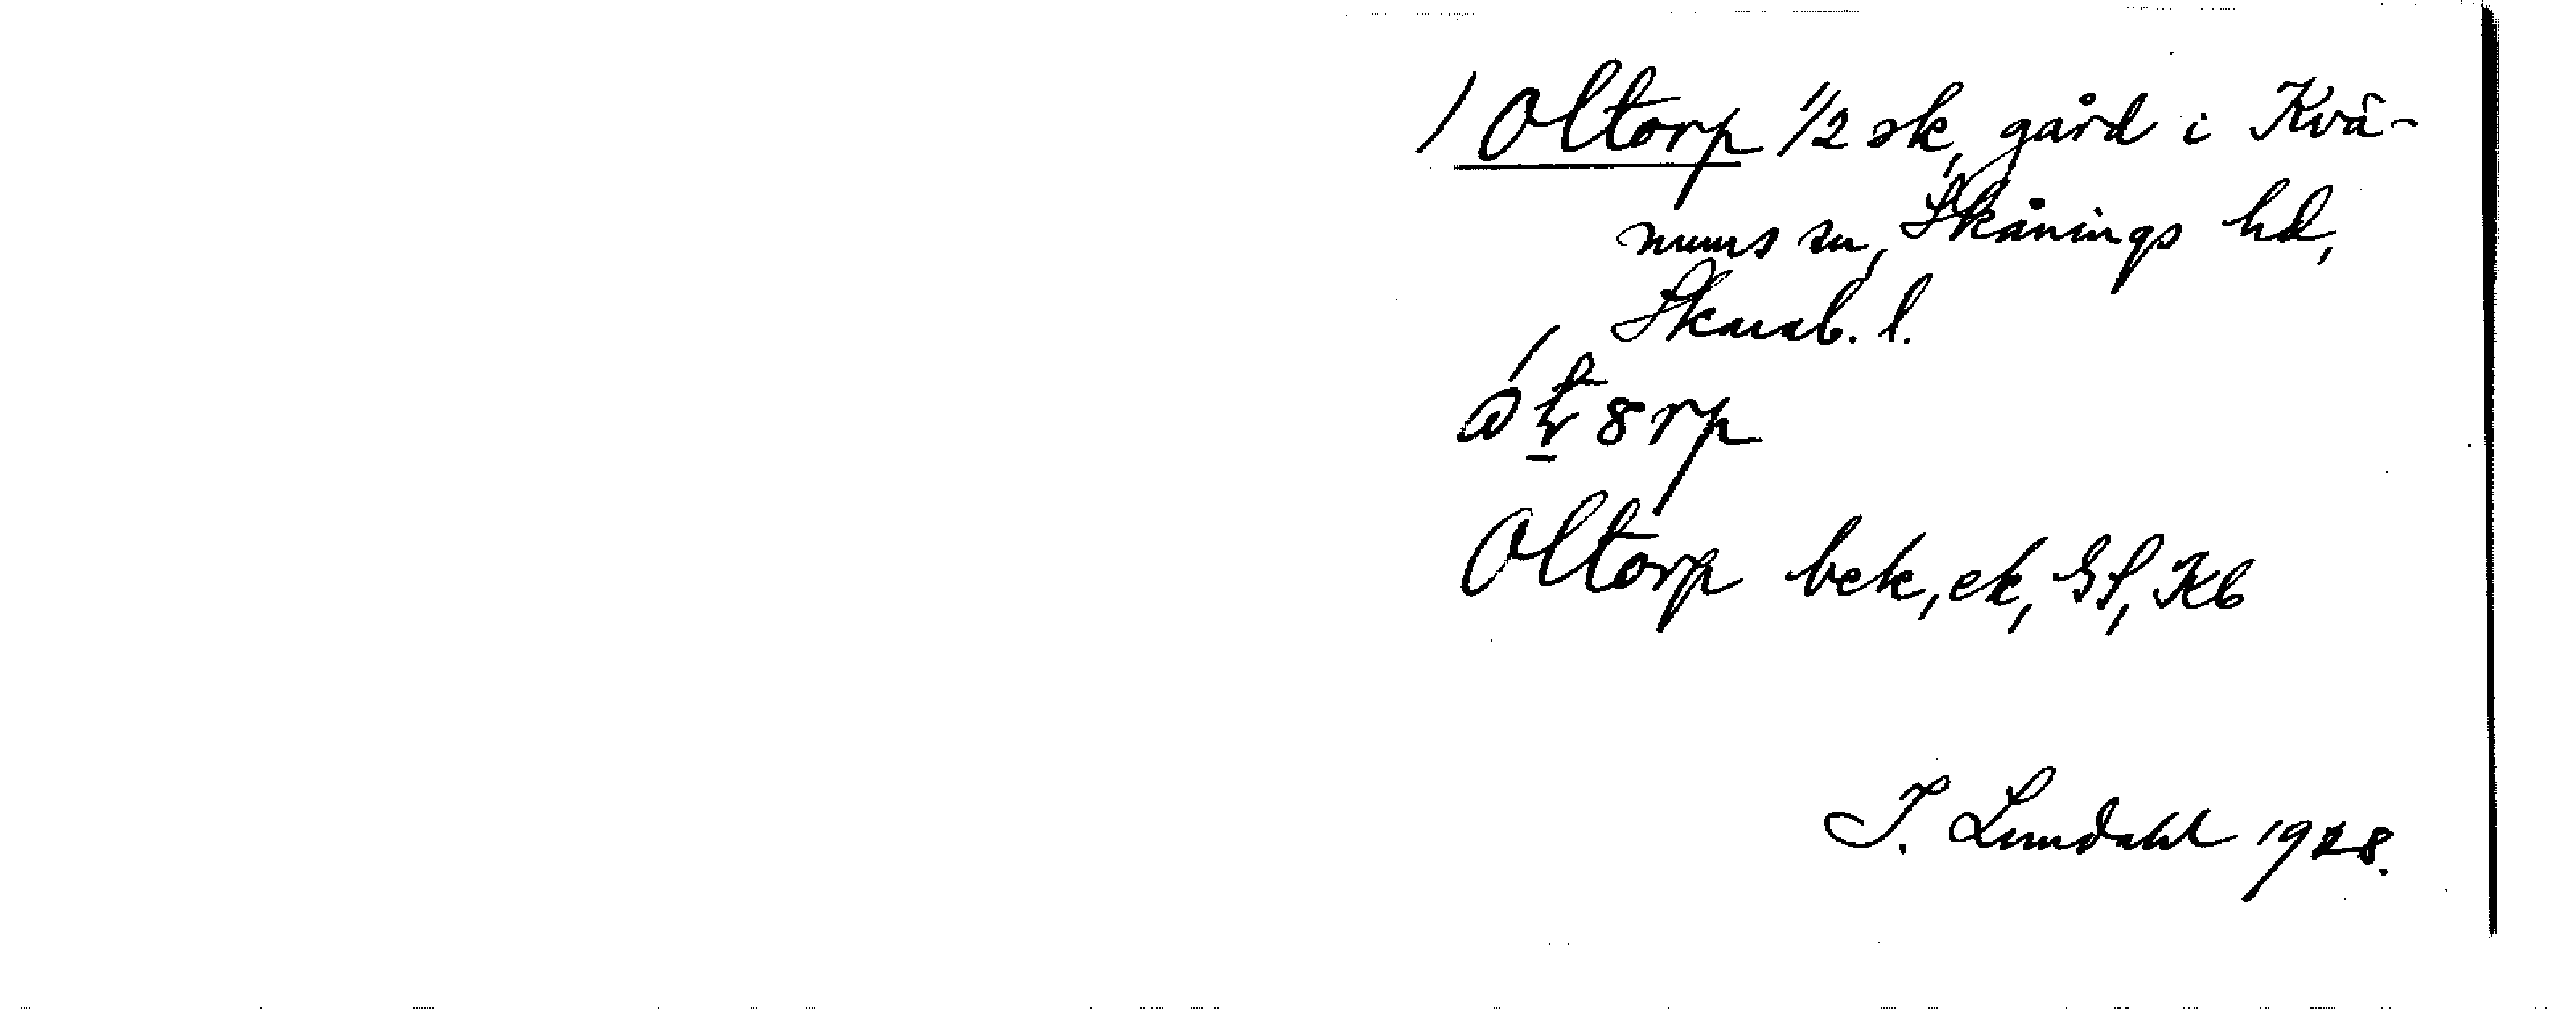 / Oltorp 1/2 sk, gård i Kvä-
nums sn, Skånings hd,
Skarab. l.
Oltorp bek, ek, Gl, Kb
I. Lundahl 1928.